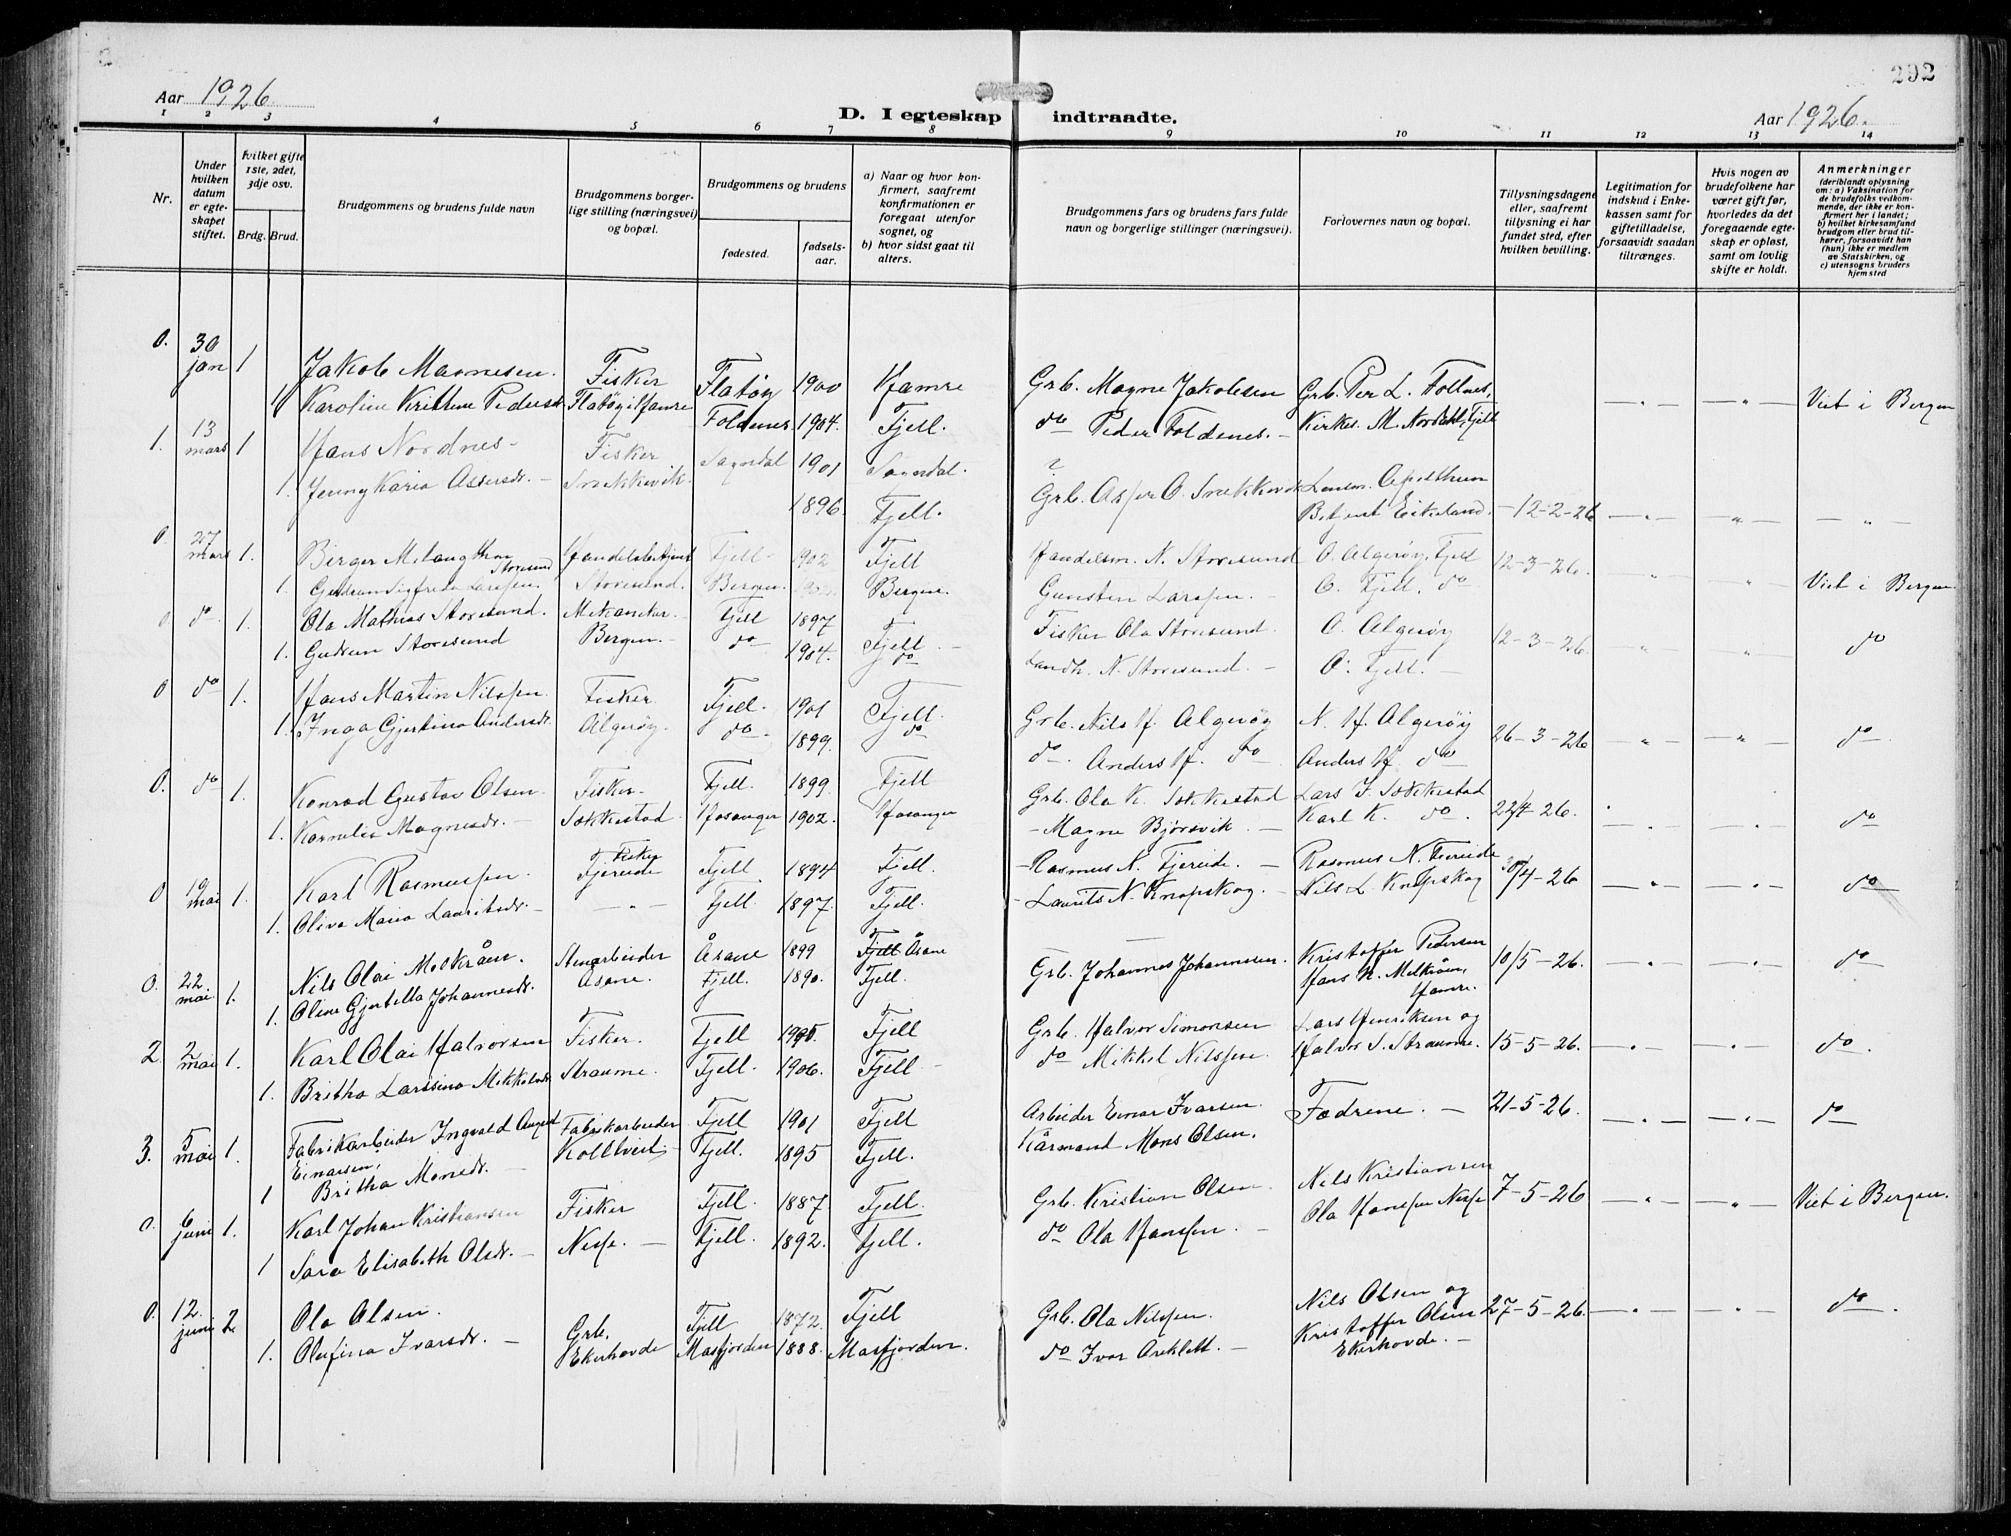 292
Aar 1926.
D. I egteskap indtraadte.
Aar 1926.
1 2 3 4 5 6 7 8 9 10 11 12 13 14
Nr.
Under hvilken datum er egteskapet stiftet.
Hvilket gifte 1ste, 2det, 3dje osv.
Brdg. Brud.
Brudgommens og brudens fulde navn
Brudgommens borgerlige stilling (næringsvei) og bopæl.
Brudgommens og brudens
fødested.
fødselsaar.
a) Naar og hvor konfirmert, saafremt konfirmationen er foregaat utenfor sognet, og
b) hvor sidst gaat til alters.
Brudgommens fars og brudens fars fulde navn og borgerlige stillinger (næringsvei).
Forlovernes navn og bopæl.
Tillysningsdagene eller, saafremt tillysning ei har fundet sted, efter hvilken bevilling.
Legitimation for indskud i Enkekassen samt for giftetilladelse, forsaavidt saadan tiltrænges.
Hvis nogen av brudefolkene har været gift før, hvorledes da det foregaaende egteskap er opløst, samt om lovlig skifte er holdt.
Anmerkninger
(deriblandt oplysning om: a) Vaksination for de brudefolks vedkommende, der ikke er konfirmert her i landet; b) hvilket kirkesamfund brudgom eller brud tilhører, forsaavidt han (hun) ikke er medlem av Statskirken, og c) utensogns bruders hjemsted
0. 30 jan 1 Jakob Magnesen. Fisker Flatøy 1900 Hamre Grb. Magne Jakobsen Grb. Per L. Foldnes,
1 Karoline Kristine Pedersdr. Flatøy i Hamre Foldenes 1904. Fjell. do Peder Foldenes. — Kirkes. M. Nordahl, Fjell — " — — " — Viet i Bergen
1. 13 mars 1 Hans Nordnes - Fisker Sogndal 1901 Sogndal. ? Lensm. Apelthun
1. Jenny Karia Assersdr. — Snekkevik. 1896. Fjell. Grb. Asser O. Snekkevik Betjent Eikeland. — 12-2-26 — " — — " — — " —
0 27 mars 1. Berger Melangthon Storesund Handelsbetjent Fjell - 1902 Fjell Handelsm. N. Storesund O. Algerøy, Fjell 12-3-26.
1. Gudrun Sigfrida Larssen. Storesund. Bergen. Bergen. Gunsten Larssen. — O. Fjell. do " " Viet i Bergen
0 do 1. Ola Mathias Storesund. Mekaniker. Fjell 1897 Fjell Fisker Ola Storesund. O. Algerøy 12-3-26.
1. Gudrun Storesund Bergen. — do 1904. do Landh. N. Storesund. — O. Fjell. — " " do
0 do 1. Hans Martin Nilssen. Fisker Fjell. 1901 Fjell. Grb. Nils H. Algerøy N. H. Algerøy 26-3-26
1. Inga Gjertina Andersdr. Algerøy. do. 1899. do do. Anders H. do Anders H. do — " — — " — do.
0. do 1. Konrad Gustav Olsen. Fisker. Fjell. 1899. Fjell Grb. Ola K. Sekkestad Lars J. Sekkestad
1. Kornelia Magnesdr. — Sekkestad. Hosanger 1902. Hosanger — Magne Bjørsvik. — Karl K. do. 22/4-26. — " — — " — do
0 19 mai 1. Karl Rasmussen. Fisker Fjereide Fjell 1894 Fjell. — Rasmus N. Fjereide. — Rasmus N. Fjereide 30/4-26
1. Oliva Maria Lauritsdr. — — " — Fjell. 1897. Fjell. — Laurits N. Knapskog. — Nils L. Knapskog — " — — " — do
0. 22. mai 1. Nils Olai Melkråen. Stenarbeider Åsane 1899 Fjell Åsane Kristoffer Pedersen 10/5-26.
1. Oline Gjertella Johannesdr. Åsane. Fjell. 1890. Fjell. Grb. Johannes Johannesen. Hans N. Melkråen, Hamre. — " — — " — do
2. 2 mai 1. Karl Olai Halvorsen Fisker. Fjell Fjell Grb. Halvor Simonsen Lars Henriksen og
1. Britha Larssina Mikkelsdr. Straume. Fjell. 1906. Fjell — do Mikkel Nilssen. Halvor S. Straume. 15-5-26. — " — — " — do.
3. 5 mai 1. Fabrikarbeider Ingvald August Einarsen. Fabrikarbeider Fjell 1901 Fjell Arbeider Einar Ivarsen. Fædrene. — 21-5-26.
1 Britha Monsdr. — Kolltveit. — Fjell. 1895 Fjell. Kårmand Mons Olsen. — " — — " — do
0. 6 juni 1. Karl Johan Kristiansen Fisker Fjell. 1887. Fjell. Grb. Kristian Olsen Nils Kristiansen
1 Sara Elisabeth Olsdr. — Nesse. — Fjell. 1892. Fjell. do Ola Hanssen. — Ola Hanssen Nesse 7-5-26 — " — — " — Viet i Bergen.
0. 12. juni 2 Ola Olsen. Grb. Fjell 1872. Fjell Grb. Ola Nilssen. Nils Olsen og
1. Olufina Ivarsdr. — Ekerhovde Masfjorden 1888. Masfjorden. do Ivar — Kristoffer Olsen 27-5-26. — " — — " — do.
Ekerhovde. —